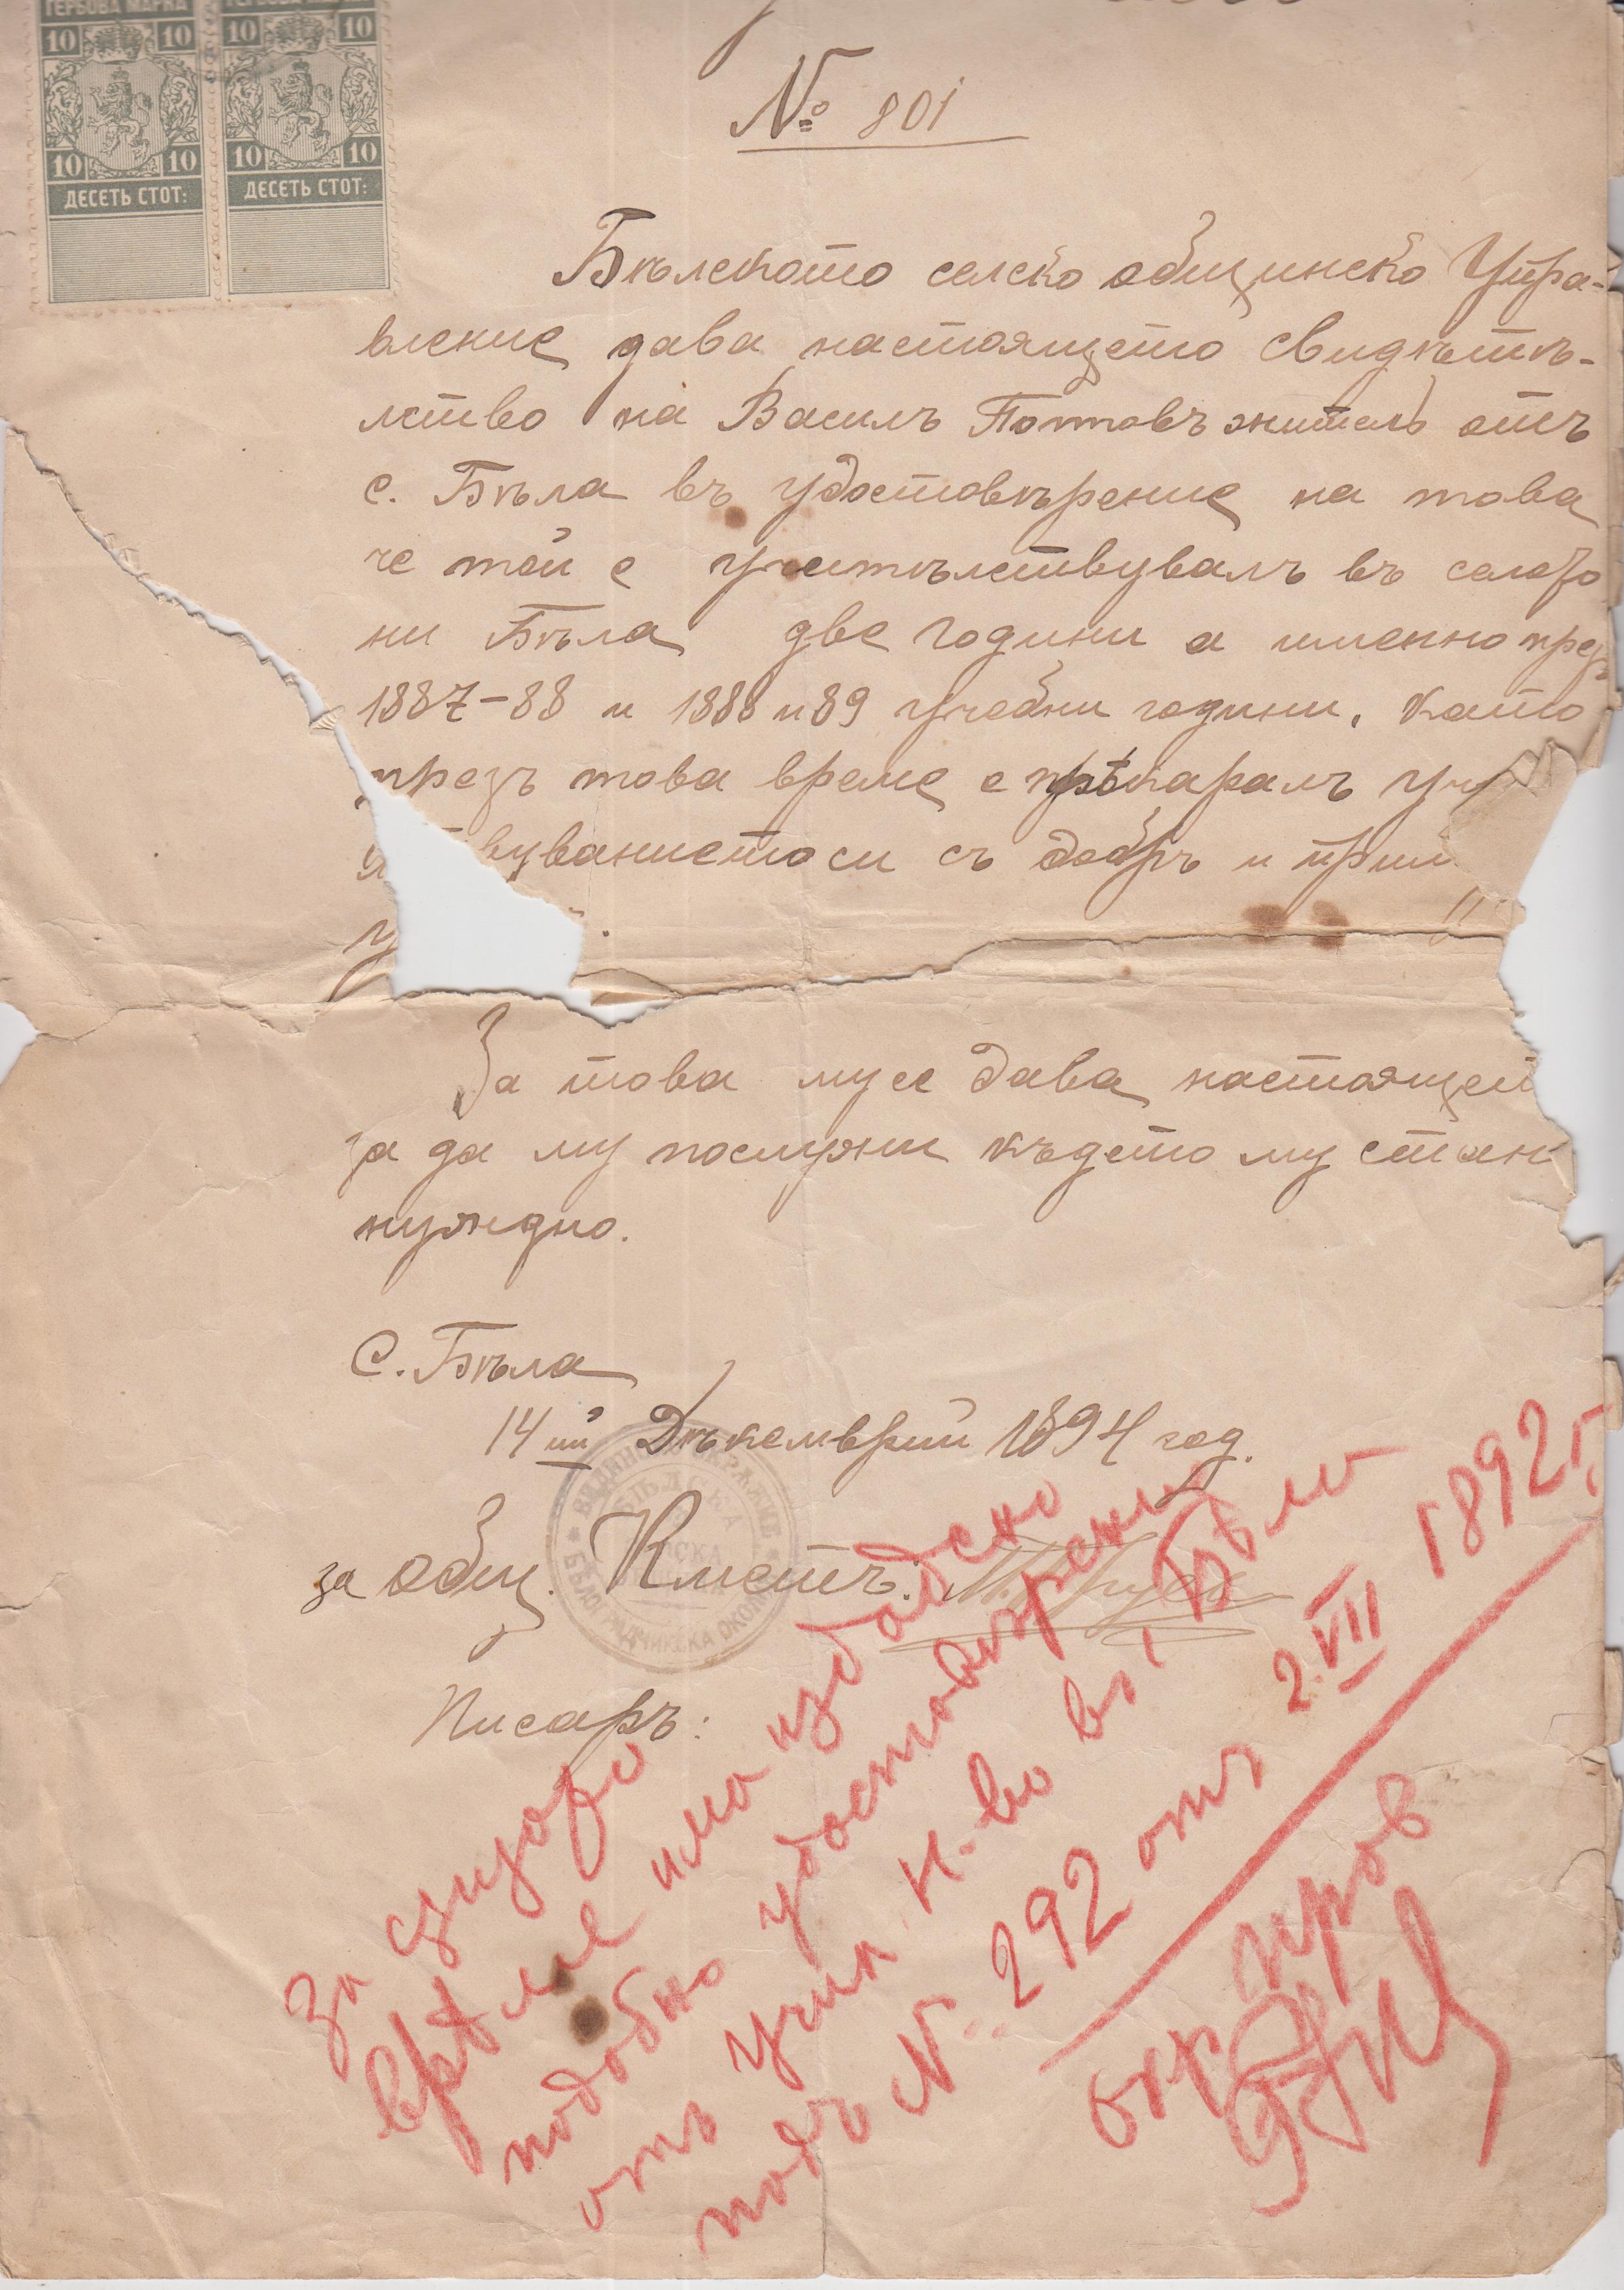 ГЕРБОВА МАРКА ГЕРБОВА МАРКА
10 10 10 10
10 10 10 10
ДЕСЕТЬ СТОТ: ДЕСЕТЬ СТОТ:
№ 801
Бѣлското селско общинско Упра-
вление дава настоящето свидѣтѣ-
лство на Василъ жителъ отъ
с. Бѣла въ удостовѣрение на това
че той е учитѣлствувалъ въ селото
ни Бѣла две години а именно презъ
1887-88 и 1888 и 89 учебни години. Като
презъ това време е уч
вуваниетоси съ добръ и прим
За това му се дава настоящет
за да му послужи където му стан
нуждно.
С. Бѣла
14ий Дѣкемврий 1894 год.
за Общ. Кметъ:
Писаръ:
ВИДИНСКО ОКРѪЖИЕ
БѢЛСКА
БѢЛОГРАДЧИКСКА ОКОЛИЯ
За същото
врѣме има издадено
подобно удостовѣрение
отъ учил. н-во въ с. Бѣла
подъ № 292 отъ 2.VII 1892 г.